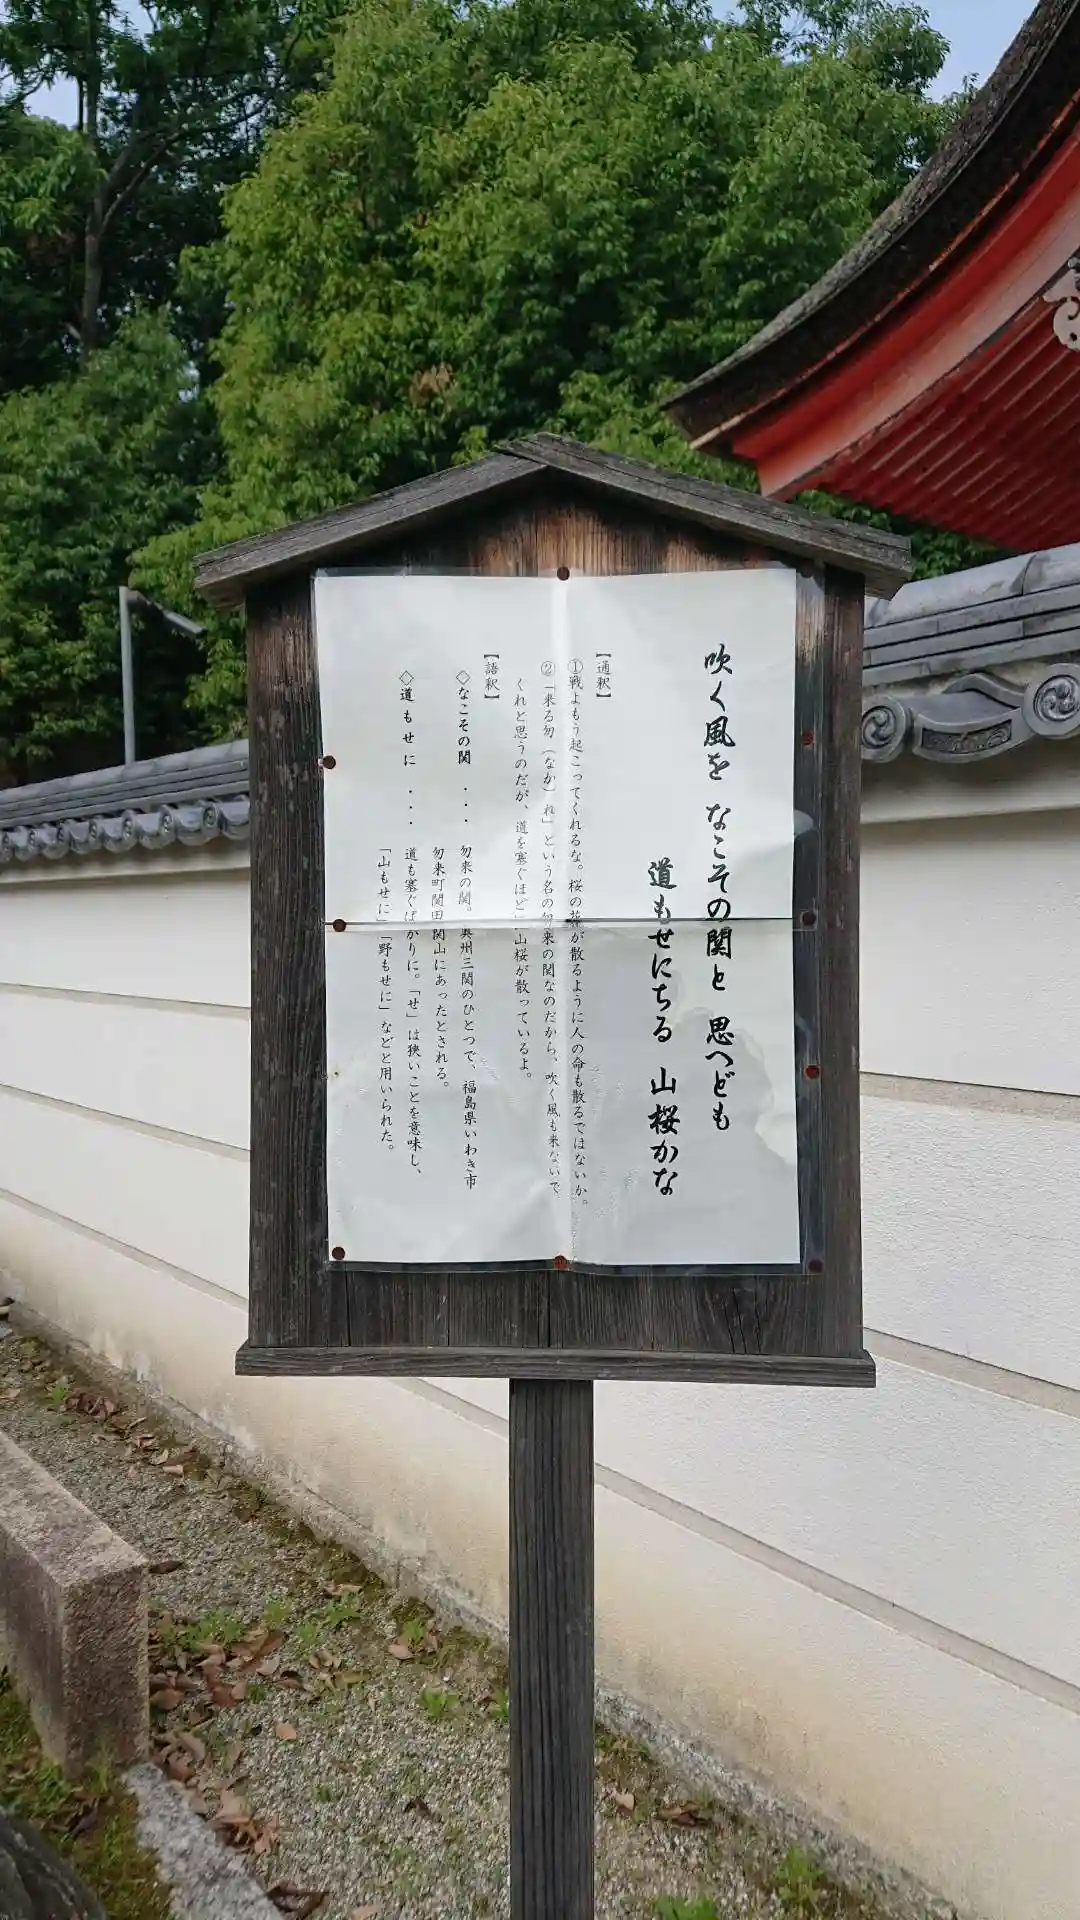 吹く風を なこその関と 思へども
道もせにちる 山桜かな
【通釈】
①戦よもう起こってくれるな。桜の花が散るように人の命も散るではないか。
②「来る勿（なか）れ」という名の勿来の関なのだから、吹く風も来ないで
くれと思うのだが、道を塞ぐほど山桜が散っているよ。
【語釈】
◇なこその関 ・・・ 勿来の関。奥州三関のひとつで、福島県いわき市
勿来町関田関山にあったとされる。
◇道もせに ・・・ 道も塞ぐばかりに。「せ」は狭いことを意味し、
「山もせに」「野もせに」などと用いられた。